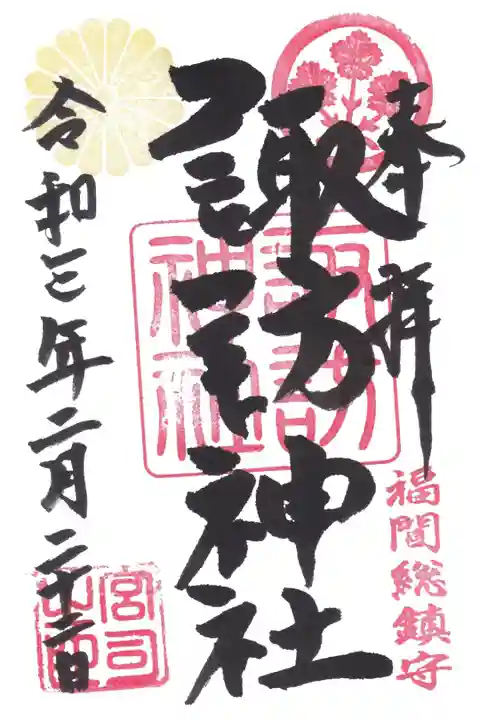 奉拝
福間総鎮守
諏訪神社
諏訪
神社
令和三年二月二十三日
宮司